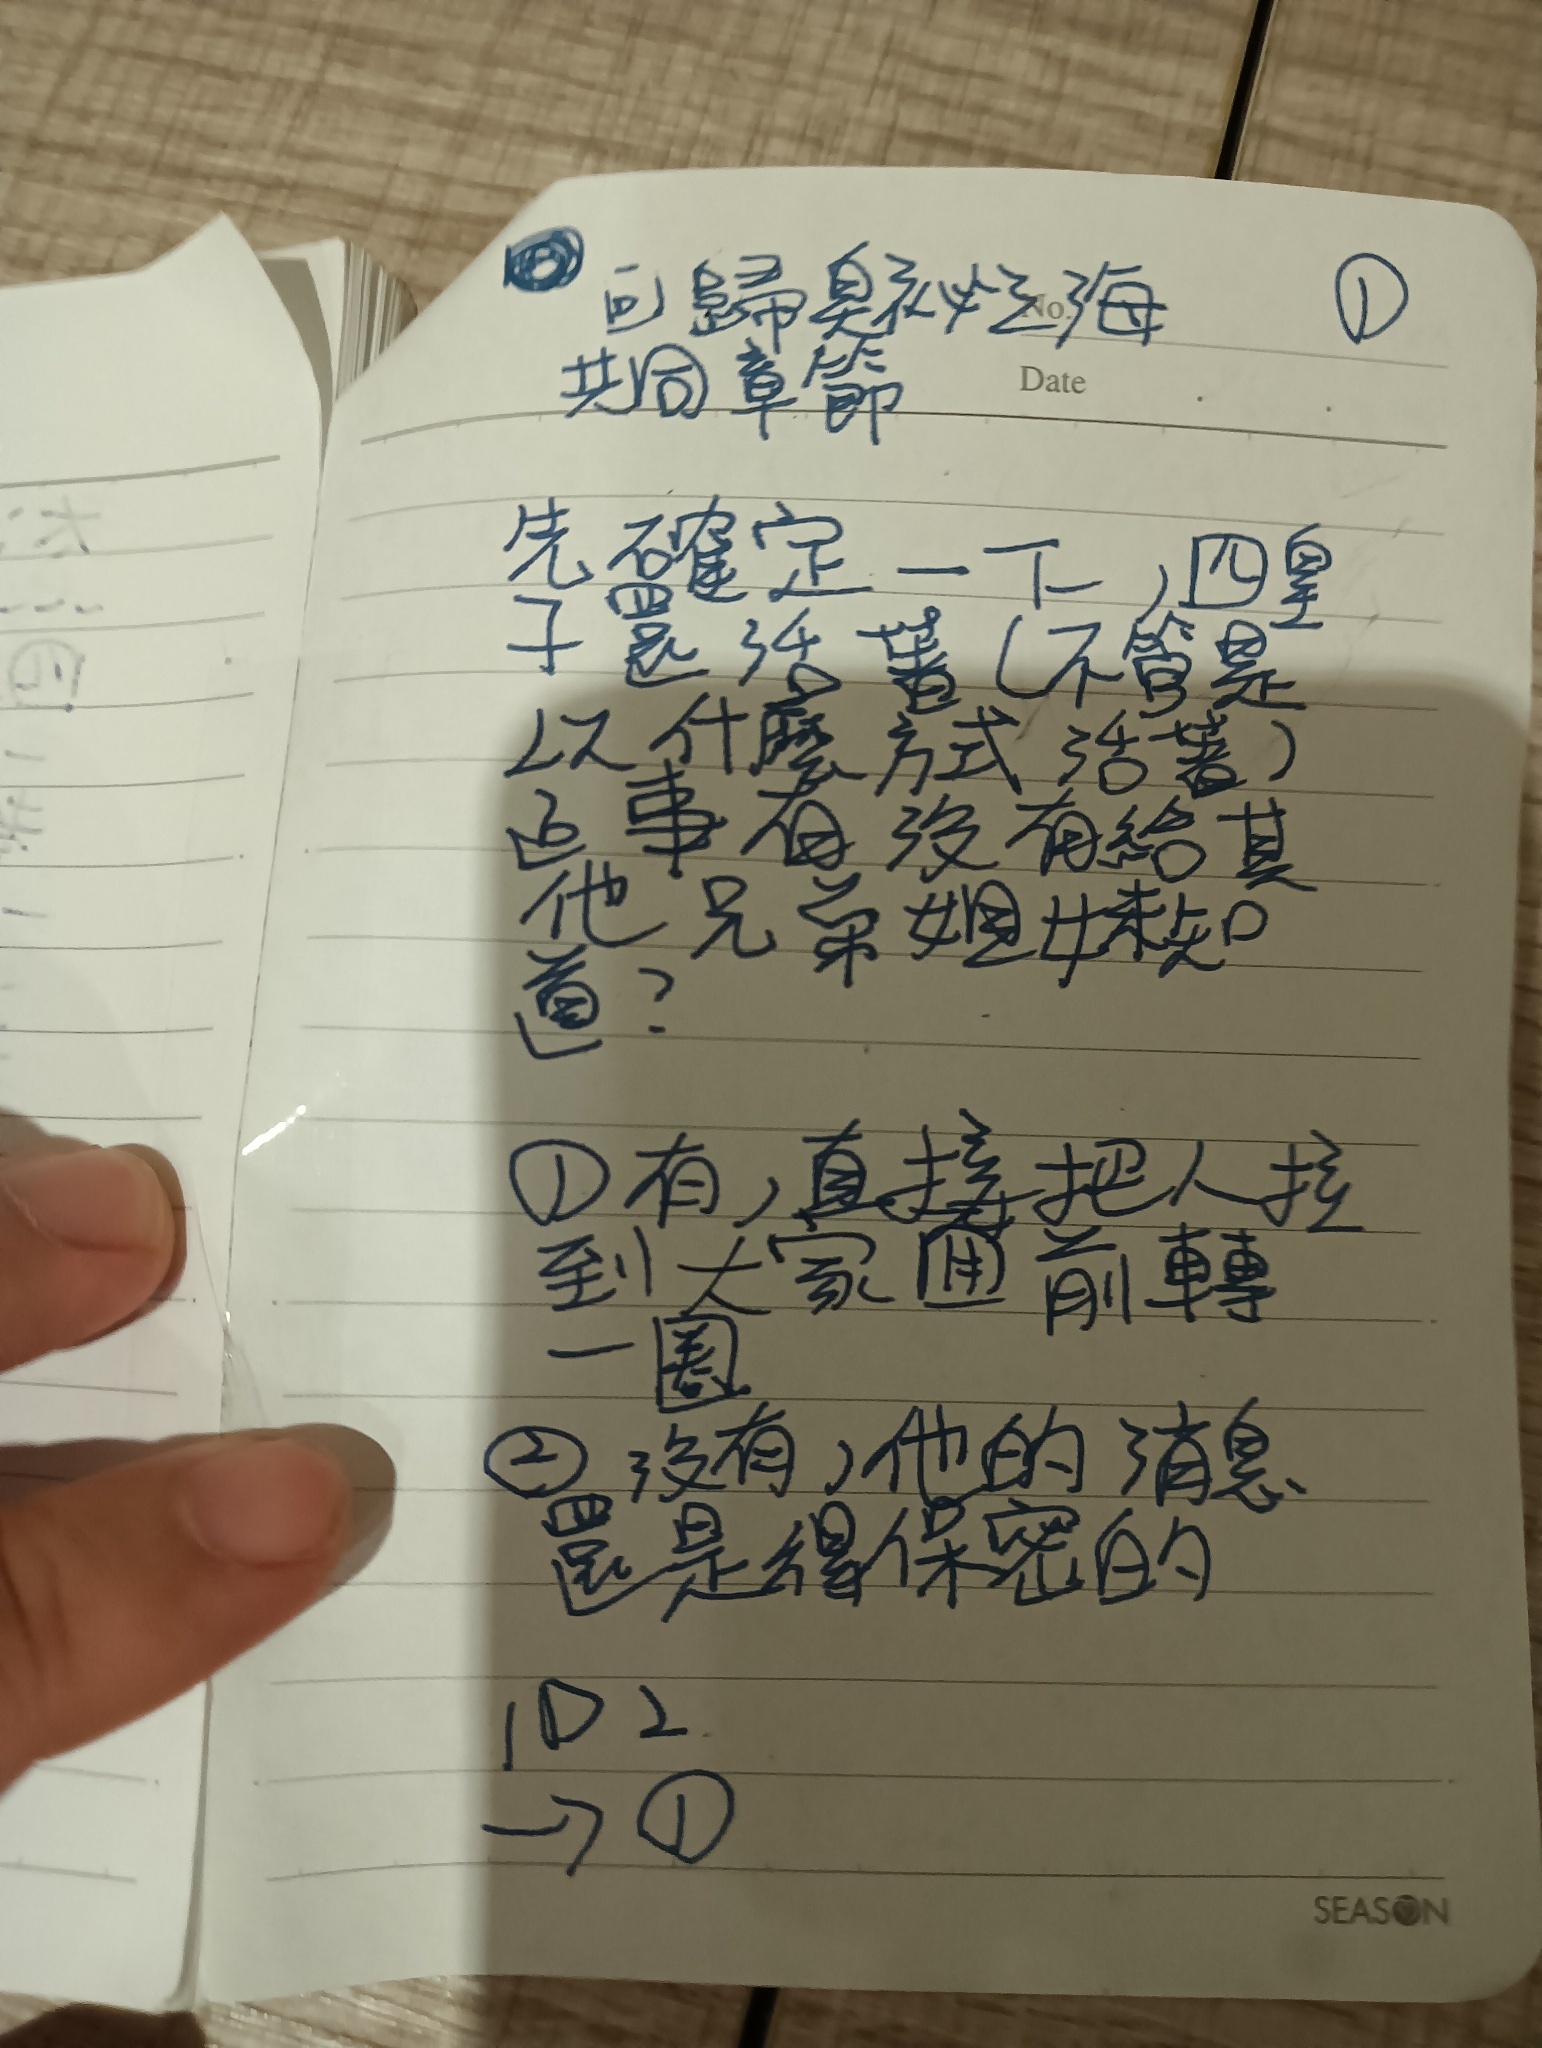 回歸奧秘之海 ①
No.
共同章節
Date
先確定一下,四皇
子還活著(不管是
以什麼方式活著)
這事有沒有給其
他兄弟姐妹知
道?
①有,直接把人拉
到大家面前轉
一圈
②沒有,他的消息
還是得保密的
1D2
→①
SEASON